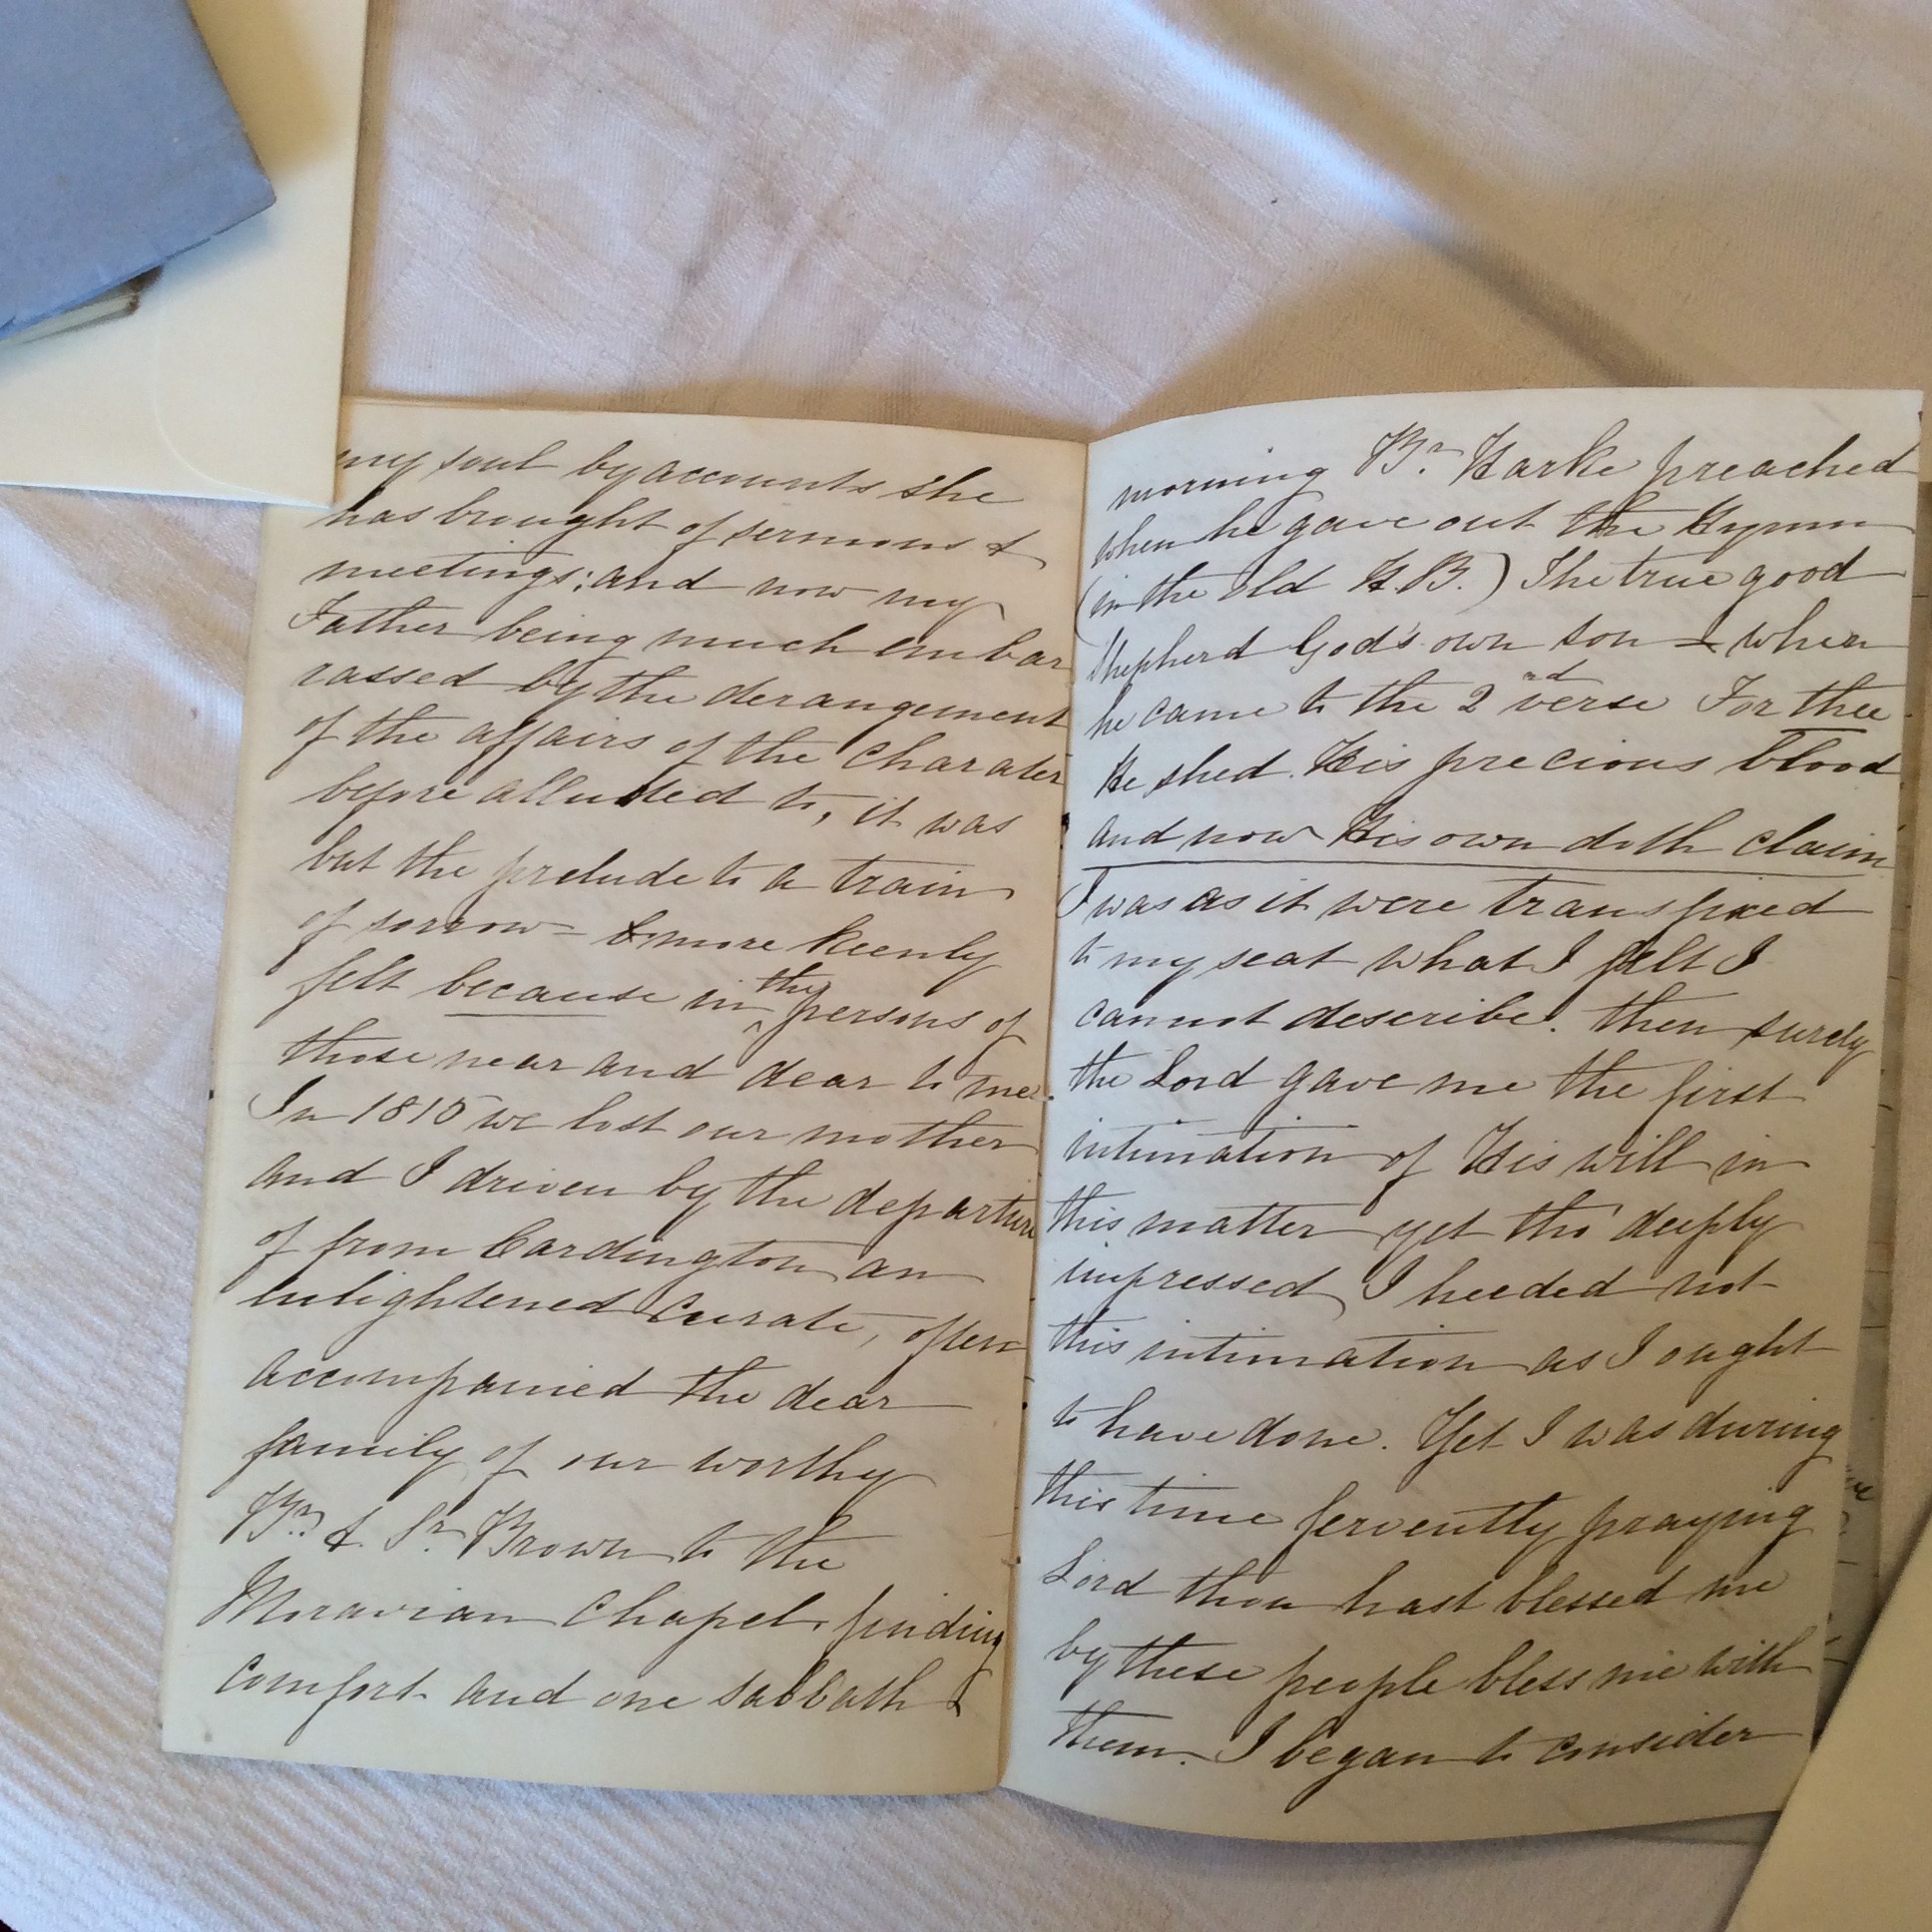 my soul by accounts she
has brought of sermons &
meetings; and now my
Father being much embar
rassed by the derangement
of the affairs of the Charater
before alluded to, it was
but the prelude to a train
of sorrow - & more keenly
felt because in the persons of
those near and dear to me.
In 1815 we lost our mother
and I driven by the departure
of from Cardington an
enlightened Curate, often
accompanied the dear
family of our worthy
Br. & Sr. Brown to the
Moravian Chapel, finding
comfort and one sabbath
morning Br. Harke preached
when he gave out the Hymn
(in the old H.B.) The true good
Shepherd God's own son - when
he came to the 2nd verse For thee
He shed His precious blood
and now His own doth claim
I was as it were transfixed
to my seat what I felt I
cannot describe. then surely
the Lord gave me the first
intimation of His will in
this matter yet tho' deeply
impressed I heeded not
this intimation as I ought
to have done. Yet I was during
this time fervently praying
Lord thou hast blessed me
by these people bless me with
them. I began to consider